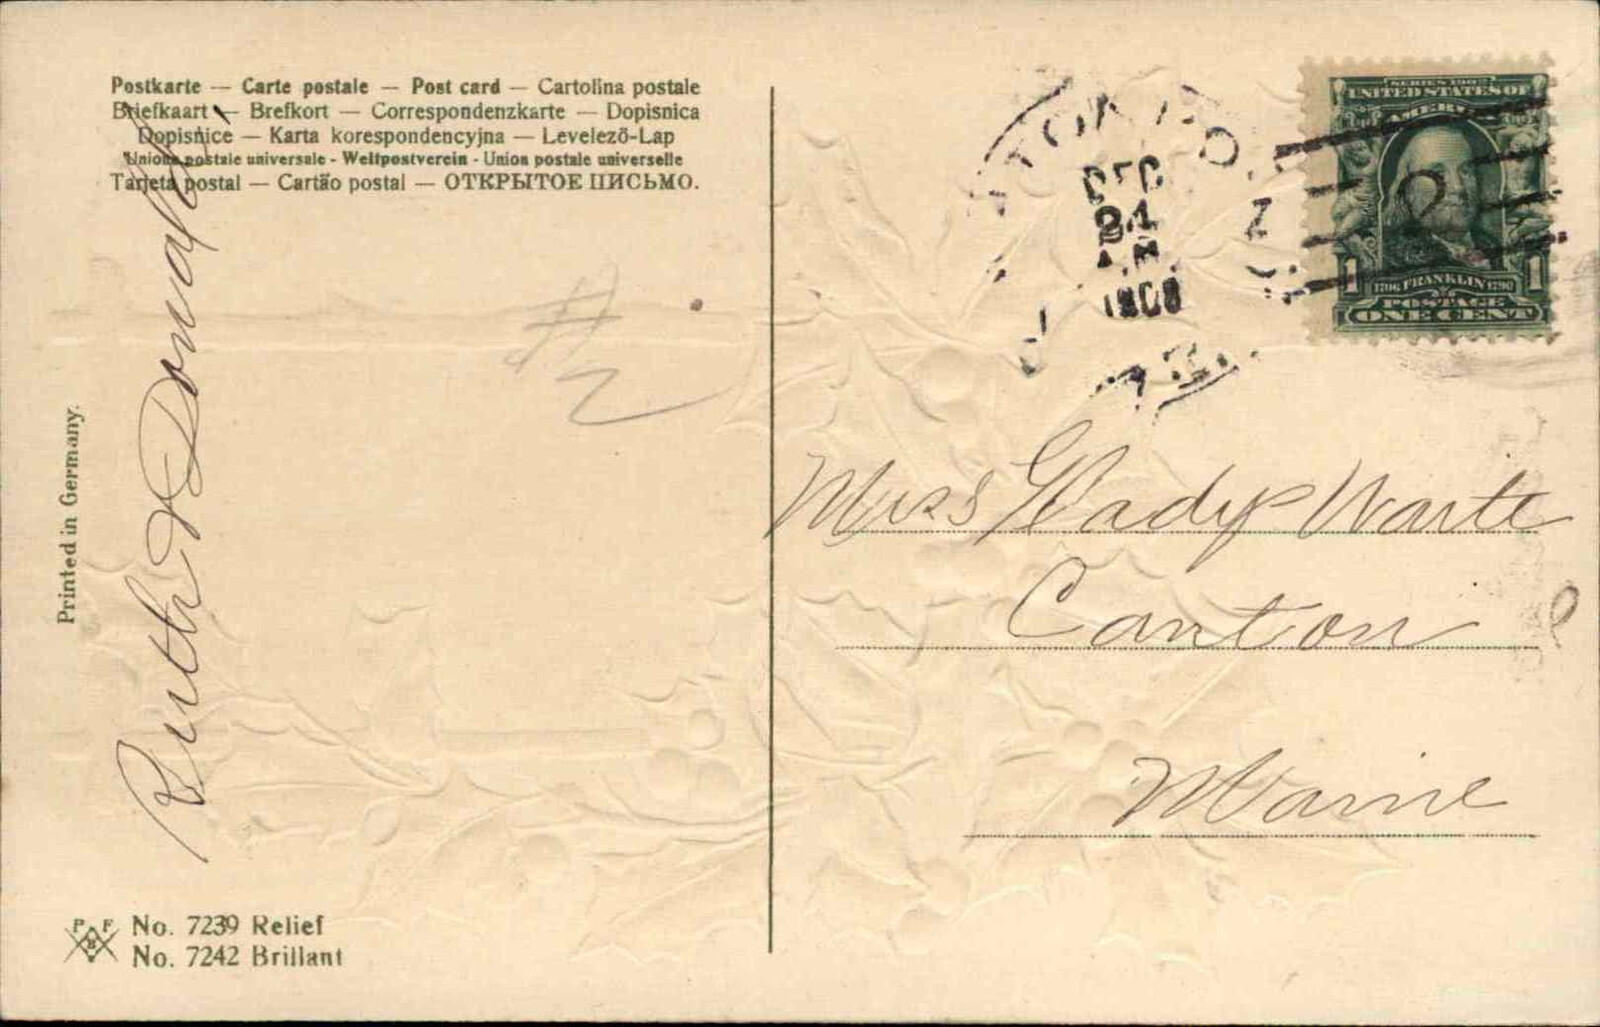 Postkarte — Carte postale — Post card — Cartolina postale
Briefkaart — Brefkort — Correspondenzkarte — Dopisnica
Dopisnice — Karta korespondencyjna — Levelező-Lap
Unione postale universale - Weltpostverein - Union postale universelle
Tarjeta postal — Cartão postal — ОТКРЫТОЕ ПИСЬМО.
Printed in Germany.
Ruth Donald
#2
P F
B
No. 7239 Relief
No. 7242 Brillant
DEC
24
1908
SERIES 1902
UNITED STATES OF
AMERICA
1 1706 FRANKLIN 1790 1
POSTAGE
ONE CENT
Miss Gladys Waite
Canton
Maine